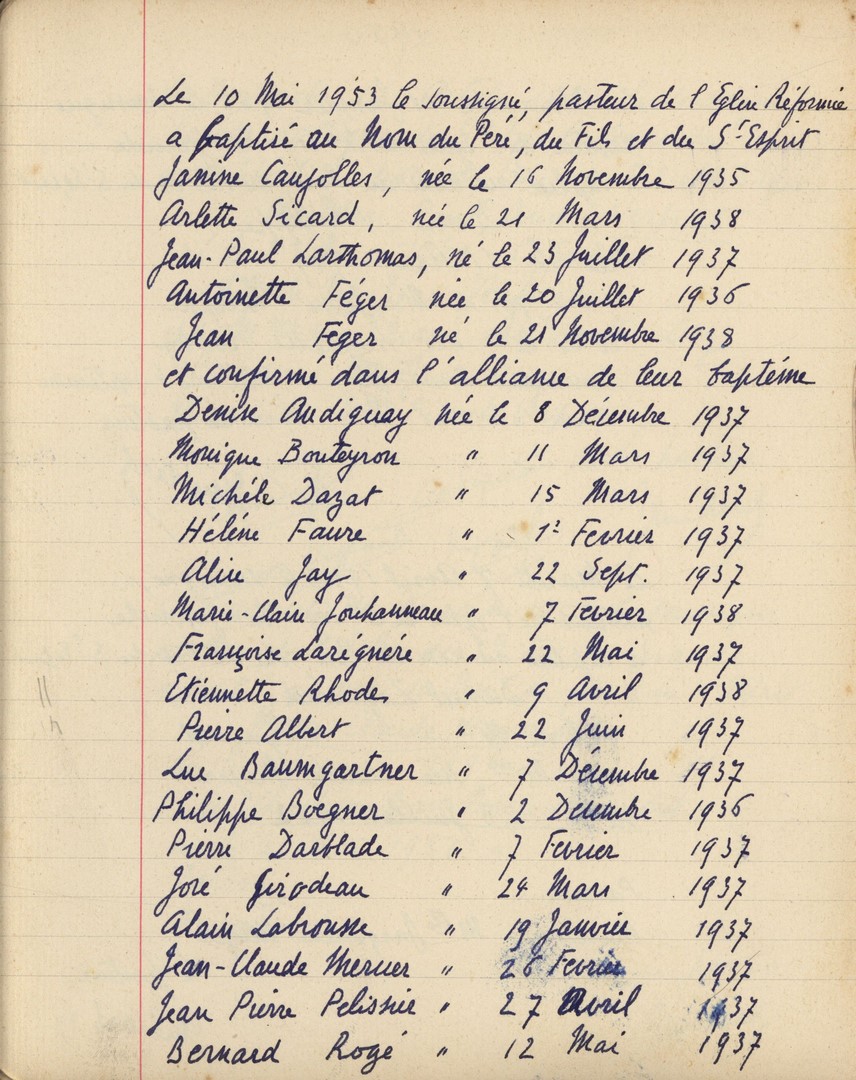 Le 10 Mai 1953 le soussigné, pasteur de l'Eglise Réformée
a baptisé au Nom du Père, du Fils et du St-Esprit
Janine Caujolles, née le 16 Novembre 1935
Arlette Sicard, née le 21 Mars 1938
Jean-Paul Larthomas, né le 23 Juillet 1937
Antoinette Féger née le 20 Juillet 1936
Jean Féger né le 21 Novembre 1938
et confirmé dans l'alliance de leur baptême
Denise Audiguay née le 8 Décembre 1937
Monique Bouteyron " 11 Mars 1937
Michéle Dazat " 15 Mars 1937
Héléne Faure " 1er Fevrier 1937
Alice Jay " 22 Sept. 1937
Marie-Claire Jouhanneau " 7 Fevrier 1938
Françoise Larégnére " 22 Mai 1937
Etiennette Rhodes " 9 Avril 1938
Pierre Albert " 22 Juin 1937
Luc Baumgartner " 7 Décembre 1937
Philippe Boegner " 2 Decembre 1936
Pierre Darblade " 7 Fevrier 1937
José Girodeau " 24 Mars 1937
Alain Labrousse " 19 Janvier 1937
Jean-Claude Mercier " 26 Fevrier 1937
Jean Pierre Pelissier " 27 Avril 1937
Bernard Rogé " 12 Mai 1937